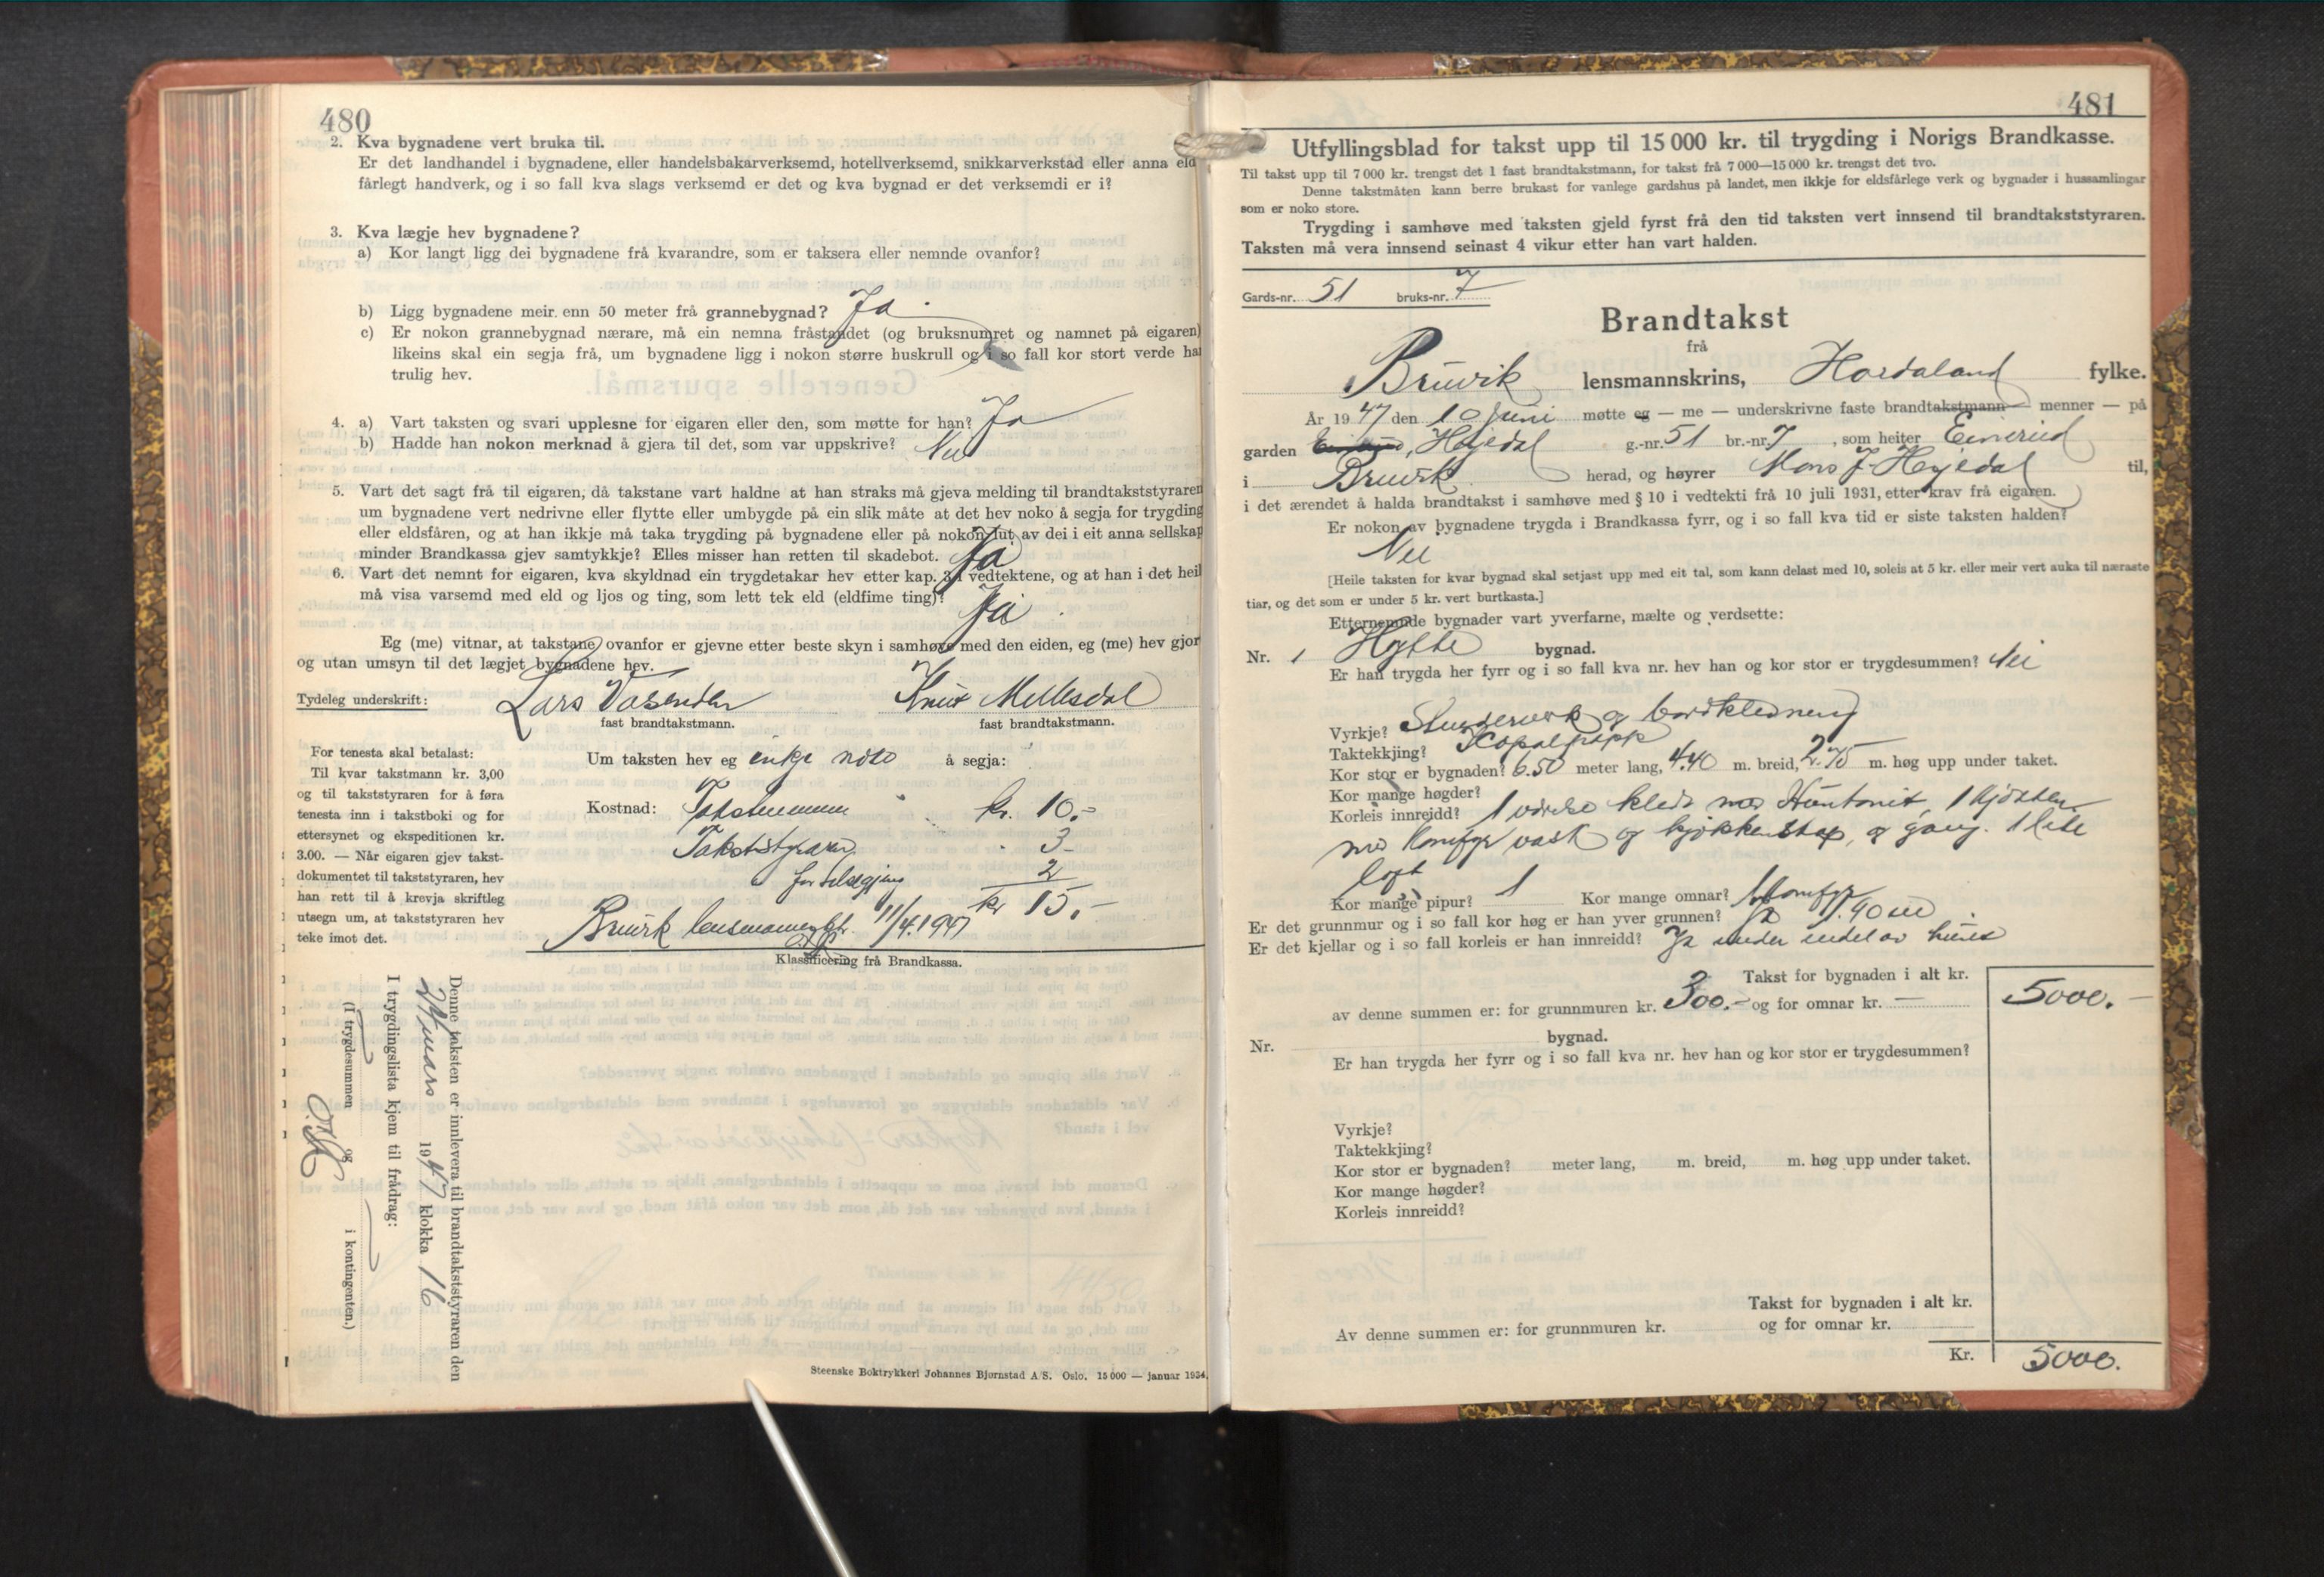 480
2. Kva bygnadene vert bruka til.
Er det landhandel i bygnadene, eller handelsbakarverksemd, hotellverksemd, snikkarverkstad eller anna eld
fårlegt handverk, og i so fall kva slags verksemd er det og kva bygnad er det verksemdi er i?
3. Kva lægje hev bygnadene?
a) Kor langt ligg dei bygnadene frå kvarandre, som er taksera eller nemnde ovanfor?
b) Ligg bygnadene meir enn 50 meter frå grannebygnad? Ja
c) Er nokon grannebygnad nærare, må ein nemna fråstandet (og bruksnumret og namnet på eigaren)
likeins skal ein segja frå, um bygnadene ligg i nokon større huskrull og i so fall kor stort verde ha
trulig hev.
4. a) Vart taksten og svari upplesne for eigaren eller den, som møtte for han? Ja
b) Hadde han nokon merknad å gjera til det, som var uppskrive? Nei
5. Vart det sagt frå til eigaren, då takstane vart haldne at han straks må gjeva melding til brandtakststyraren
um bygnadene vert nedrivne eller flytte eller umbygde på ein slik måte at det hev noko å segja for trygding
eller eldsfåren, og at han ikkje må taka trygding på bygnadene eller på nokon lut av dei i eit anna sellskap
minder Brandkassa gjev samtykkje? Elles misser han retten til skadebot. Ja
6. Vart det nemnt for eigaren, kva skyldnad ein trygdetakar hev etter kap. 3 i vedtektene, og at han i det heil
må visa varsemd med eld og ljos og ting, som lett tek eld (eldfime ting)? Ja
Eg (me) vitnar, at takstane ovanfor er gjevne etter beste skyn i samhøve med den eiden, eg (me) hev gjor
og utan umsyn til det lægjet bygnadene hev.
Tydeleg underskrift: Lars Vasenden Knut Mellesdal
fast brandtakstmann. fast brandtakstmann.
For tenesta skal betalast:
Til kvar takstmann kr. 3,00
og til takststyraren for å føra
tenesta inn i takstboki og for
ettersynet og ekspeditionen kr.
3.00. — Når eigaren gjev takst-
dokumentet til takststyraren, hev
han rett til å krevja skriftleg
utsegn um, at takststyraren hev
teke imot det.
Um taksten hev eg inkje noko å segja:
Kostnad: Takstmenn kr. 10.-
Takststyrar 3-
2
kr 15.-
Bruvik lensmannsktr. 11/4.1947
Klassificering frå Brandkassa.
Denne taksten er innlevera til brandtakststyraren den
1947 klokka 16
I trygdingslista kjem til frådrag:
(I trygdesummen og i kontingenten.)
Steenske Boktrykkeri Johannes Bjørnstad A/S. Oslo. 15 000 — januar 1934.
481
Utfyllingsblad for takst upp til 15 000 kr. til trygding i Norigs Brandkasse.
Til takst upp til 7 000 kr. trengst det 1 fast brandtakstmann, for takst frå 7 000—15 000 kr. trengst det tvo.
Denne takstmåten kann berre brukast for vanlege gardshus på landet, men ikkje for eldsfårlege verk og bygnader i hussamlingar
som er noko store.
Trygding i samhøve med taksten gjeld fyrst frå den tid taksten vert innsend til brandtakststyraren.
Taksten må vera innsend seinast 4 vikur etter han vart halden.
Gards-nr. 51 bruks-nr. 7
Brandtakst
frå
Bruvik lensmannskrins, Hordaland fylke.
År 1947 den 10 juni møtte eg — me — underskrivne faste brandtakstmann — menner — på
garden Højedal g.-nr. 51 br.-nr. 7, som heiter Einerud
i Bruvik herad, og høyrer Mons J. Høyedal til,
i det ærendet å halda brandtakst i samhøve med § 10 i vedtekti frå 10 juli 1931, etter krav frå eigaren.
Er nokon av bygnadene trygda i Brandkassa fyrr, og i so fall kva tid er siste taksten halden?
Nei
[Heile taksten for kvar bygnad skal setjast upp med eit tal, som kann delast med 10, soleis at 5 kr. eller meir vert auka til næraste
tiar, og det som er under 5 kr. vert burtkasta.]
Etternemnde bygnader vart yverfarne, mælte og verdsette:
Nr. 1 Hytte bygnad.
Er han trygda her fyrr og i so fall kva nr. hev han og kor stor er trygdesummen? Nei
Vyrkje? og bordkledning
Taktekkjing? papp
Kor stor er bygnaden? 6.50 meter lang, 4.40 m. breid, 2.75 m. høg upp under taket.
Kor mange høgder?
Korleis innreidd? 1 værelse kledd med Huntonit, 1 kjøkken
med komfyr vask og kjøkkenskap, og gang. 1 lite
loft
Kor mange pipur? 1 Kor mange omnar? 1 komfyr
Er det grunnmur og i so fall kor høg er han yver grunnen? Ja 1.40 m
Er det kjellar og i so fall korleis er han innreidd? Ja under endel av huset
Takst for bygnaden i alt kr. 5000.-
av denne summen er: for grunnmuren kr. 300.- og for omnar kr. —
Nr. bygnad.
Er han trygda her fyrr og i so fall kva nr. hev han og kor stor er trygdesummen?
Vyrkje?
Taktekkjing?
Kor stor er bygnaden? meter lang, m. breid, m. høg upp under taket.
Kor mange høgder?
Korleis innreidd?
Takst for bygnaden i alt kr.
Av denne summen er: for grunnmuren kr. og for omnar kr.
Kr. 5000.